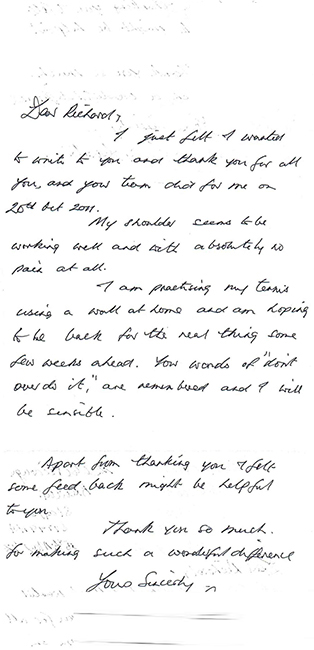 Dear Richard,
I just felt I wanted
to write to you and thank you for all
you, and your team did for me on
20th Oct 2011.
My shoulder seems to be
working well and with absolutely no
pain at all.
I am practising my tennis
using a wall at home and am hoping
to be back for the real thing some
few weeks ahead. Your words of "don't
over do it," are remembered and I will
be sensible.
Apart from thanking you I felt
some feed back might be helpful
to you
Thank you so much.
for making such a wonderful difference
Yours Sincerely